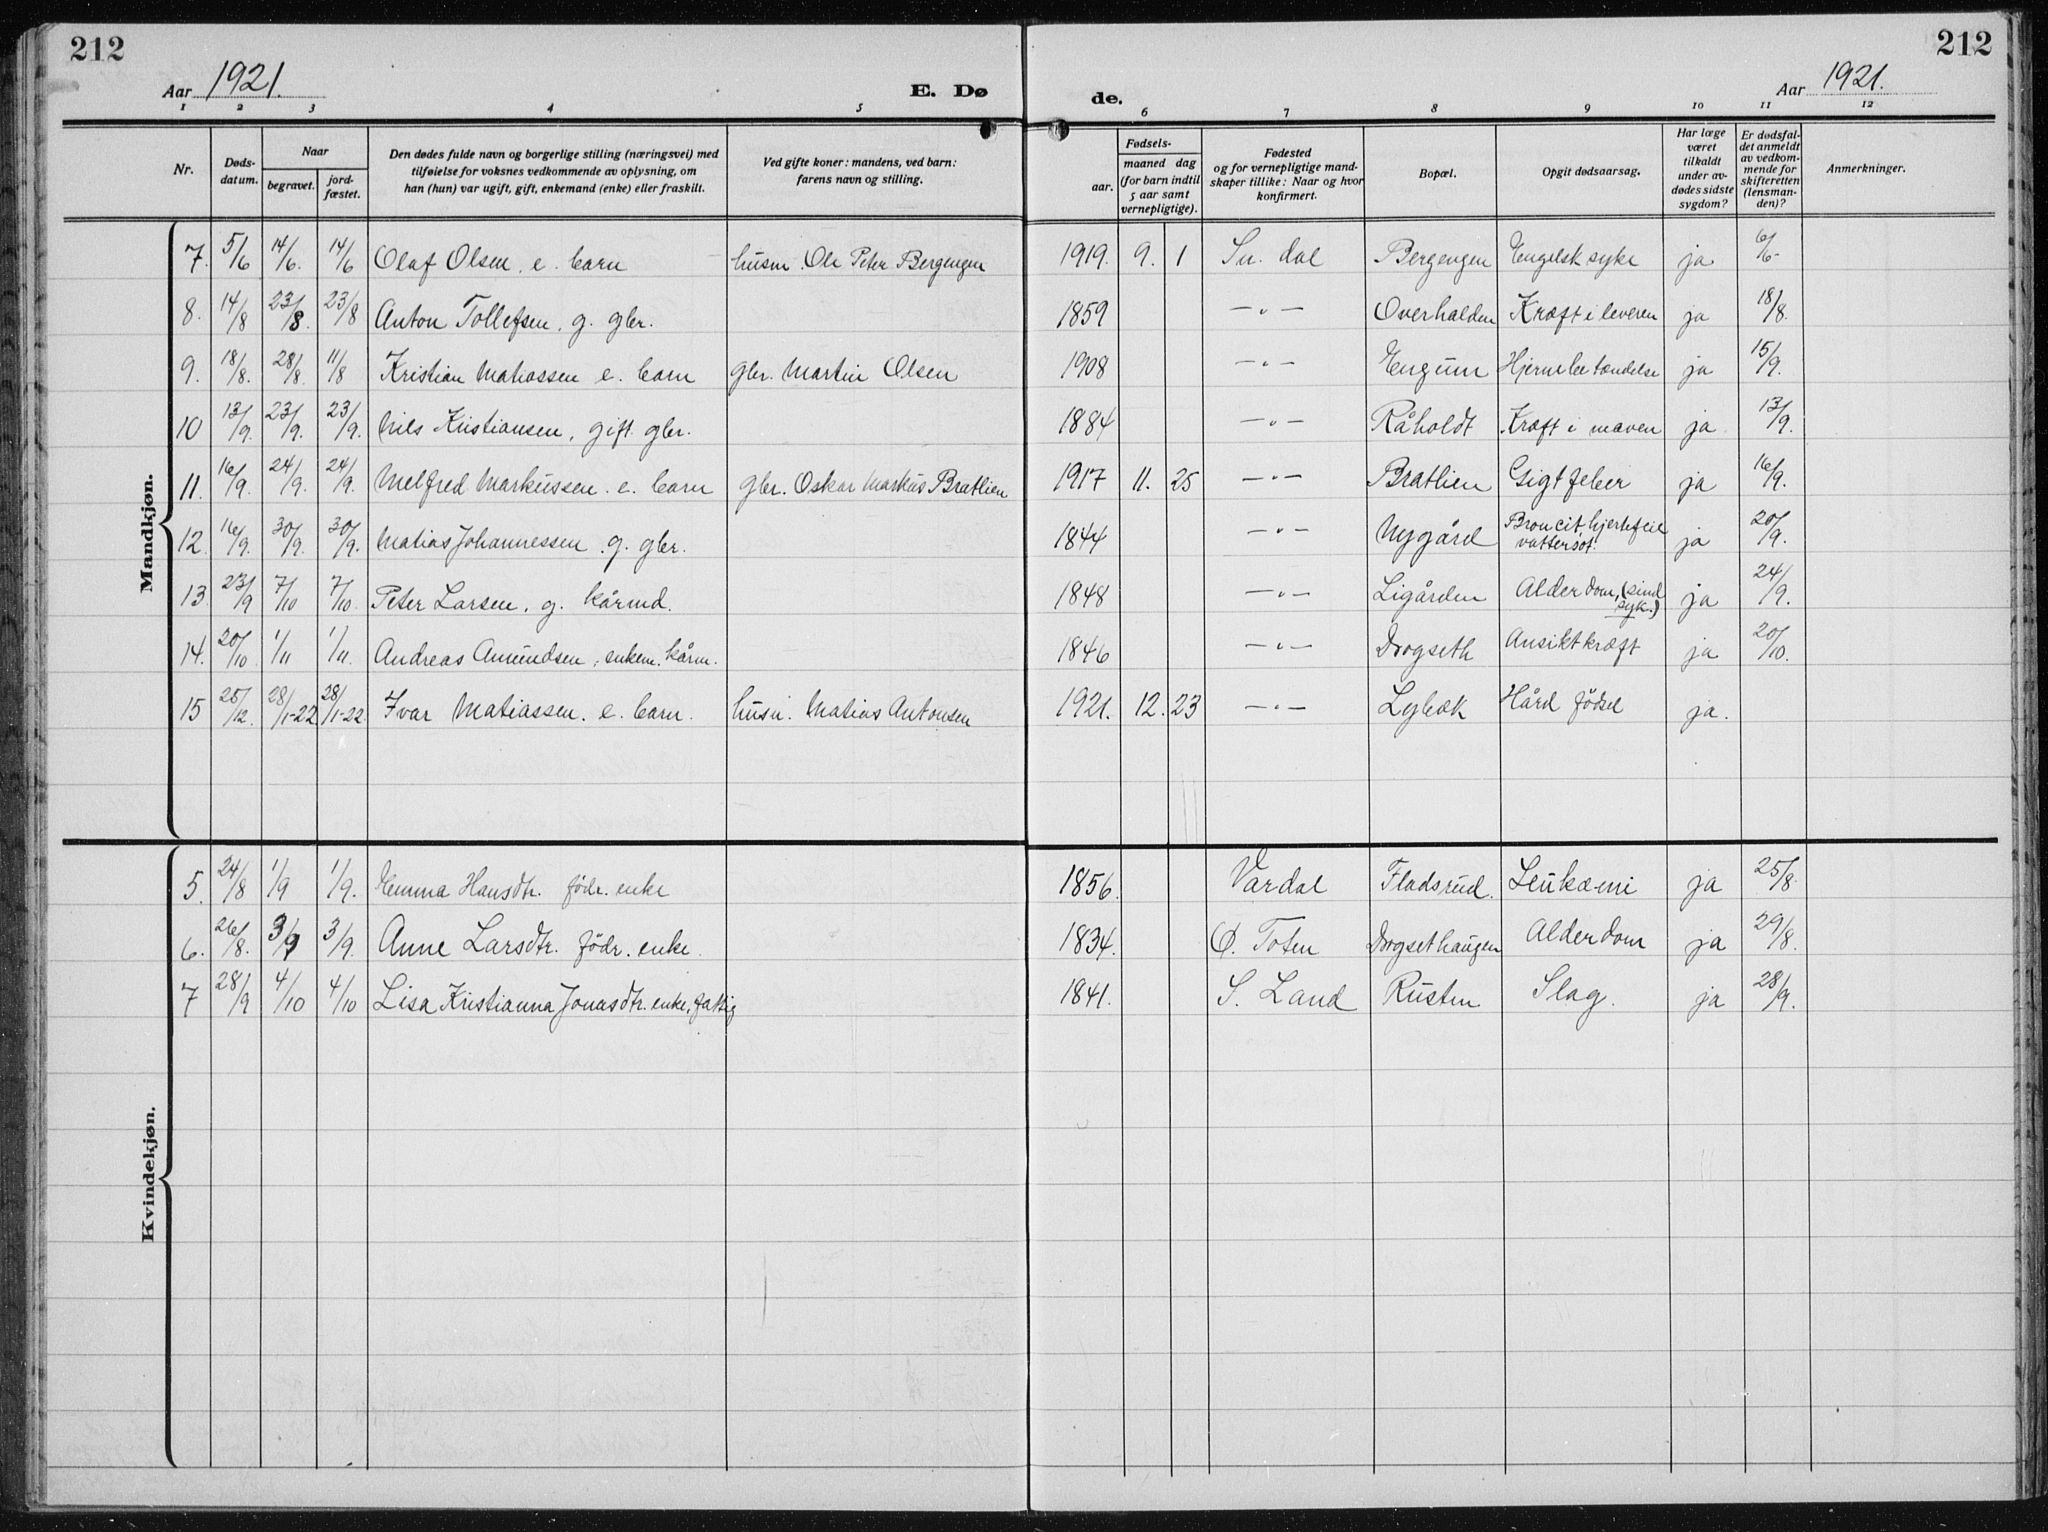 212
212
Aar 1921.
E. Dø
de.
Aar 1921.
1 2 3 4 5 6 7 8 9 10 11 12
Nr.
Døds-
datum.
Naar
begravet.
jord-
fæstet.
Den dødes fulde navn og borgerlige stilling (næringsvei) med
tilføielse for voksnes vedkommende av oplysning, om
han (hun) var ugift, gift, enkemand (enke) eller fraskilt.
Ved gifte koner: mandens, ved barn:
farens navn og stilling.
Fødsels-
aar.
maaned dag
(for barn indtil
5 aar samt
vernepligtige).
Fødested
og for vernepligtige mand-
skaper tillike: Naar og hvor
konfirmert.
Bopæl.
Opgit dødsaarsag.
Har læge
været
tilkaldt
under av-
dødes sidste
sygdom?
Er dødsfal-
det anmeldt
av vedkom-
mende for
skifteretten
(lensman-
den)?
Anmerkninger.
Mandkjøn.
7. 5/6 14/6. 14/6 Olaf Olsen, e. barn husm. Ole Peter Bergengen 1919. 9. 1 Sn. dal Bergengen Engelsk syke ja 6/6-
8. 14/8 23/8. 23/8 Anton Tollefsen, g. gbr. 1859 -"- Overhalden Kræft i leveren ja 18/8.
9. 18/8. 28/8. 11/8 Kristian Matiassen e. barn gbr. Martin Olsen 1908 -"- Engum Hjernebetændelse ja 15/9.
10 13/9. 23/9. 23/9. Nils Kristiansen, gift gbr. 1884 -"- Råholdt Kræft i maven ja 13/9.
11. 16/9. 24/9. 24/9. Melfred Markussen. e. barn gbr. Oskar Markus Bratlien 1917 11. 25 -"- Bratlien Gigtfeber ja 16/9.
12. 16/9. 30/9. 30/9. Matias Johannessen. g. gbr. 1844 -"- Nygård Broncit hjertefeil
vattersot. ja 20/9.
13 23/9 7/10 7/10. Peter Larsen, g. kårmd. 1848 -"- Ligården Alderdom, (sind
syk.) ja 24/9.
14. 20/10 1/11 1/11. Andreas Amundsen, enkem. kårm. 1846 -"- Drogseth Ansiktkræft ja 20/10.
15 25/12. 28/1-22 28/1-22. Ivar Matiassen. e. barn. husm. Matias Antonsen 1921. 12. 23 -"- Lybæk Hård fødsel ja.
Kvindekjøn.
5. 24/8 1/9 1/9. Emma Hansdtr. födr. enke 1856. Vardal Fladsrud. Leukæmi ja 25/8.
6. 26/8. 3/9 3/9. Anne Larsdtr. födr. enke. 1834. Ø. Toten Drogsethaugen Alderdom ja 29/8.
7 28/9 4/10 4/10 Lisa Kristianna Jonasdtr. enke, fattig 1841. S. Land Rusten Slag. ja 28/9.